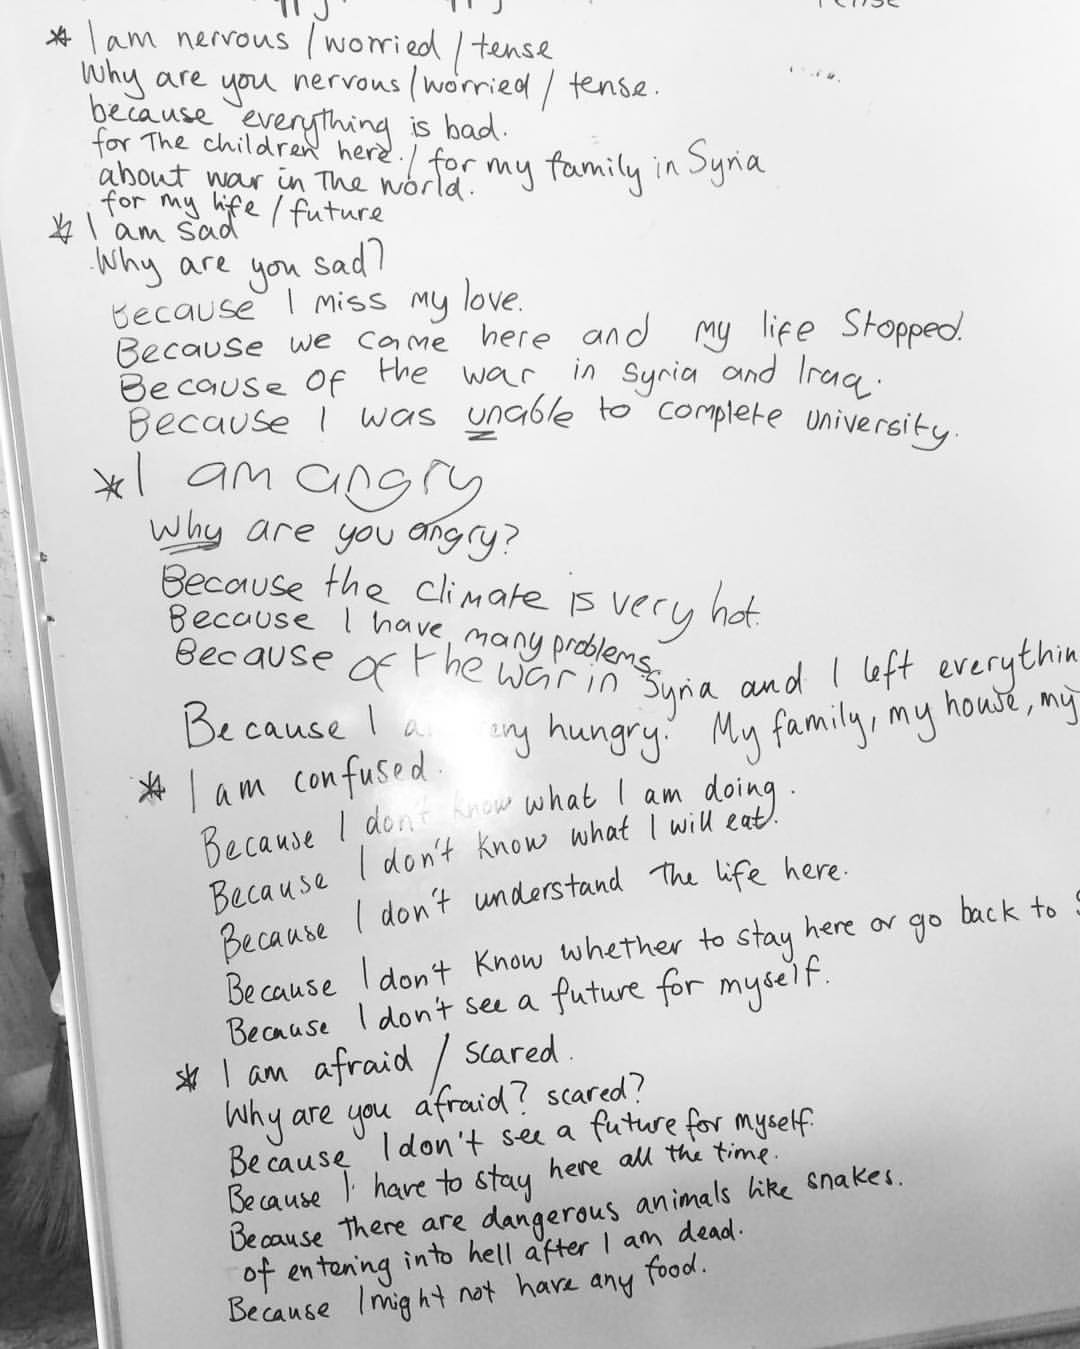 * I am nervous / worried / tense
Why are you nervous / worried / tense.
because everything is bad.
for The children here. / for my family in Syria
about war in The world.
for my life / future
* I am sad
Why are you sad?
Because I miss my love.
Because we came here and my life Stopped.
Because of the war in Syria and Iraq.
Because I was unable to complete university.
* I am angry
Why are you angry?
Because the climate is very hot.
Because I have many problems
Because of the war in Syria and I left everythin
Because I a ery hungry. My family, my house, my
* I am confused.
Because I don't know what I am doing.
Because I don't know what I will eat.
Because I don't understand The life here.
Because I don't know whether to stay here or go back to S
Because I don't see a future for myself.
* I am afraid / scared.
Why are you afraid? scared?
Because I don't see a future for myself.
Because I have to stay here all the time.
Because there are dangerous animals like snakes.
of entering into hell after I am dead.
Because I might not have any food.